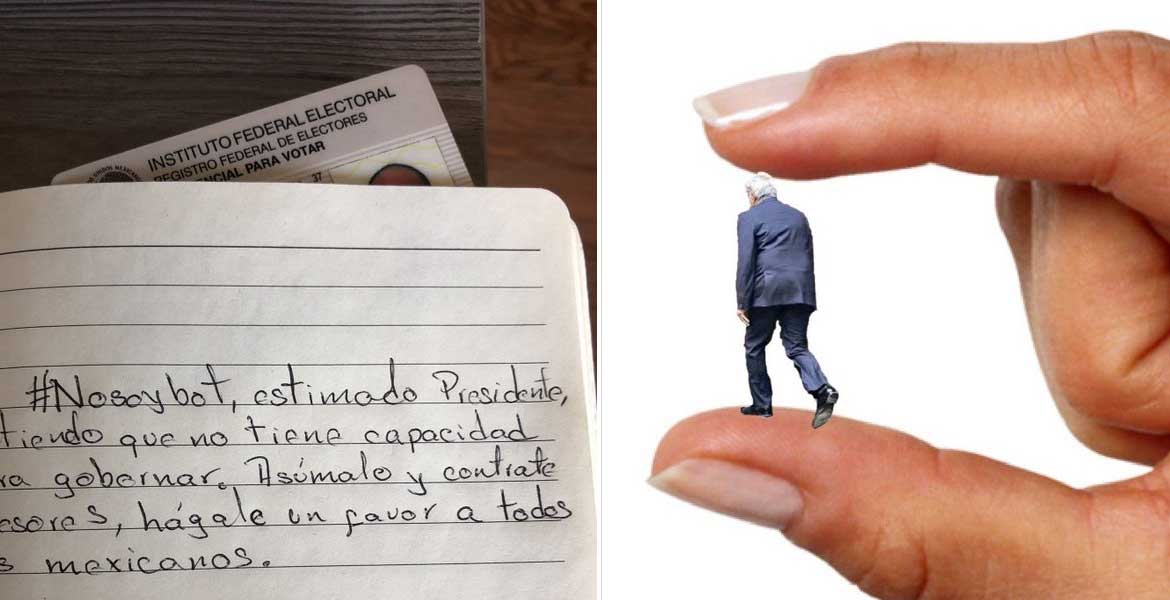 INSTITUTO FEDERAL ELECTORAL
REGISTRO FEDERAL DE ELECTORES
ENCIAL PARA VOTAR
37
#Nosoybot, estimado Presidente,
tiendo que no tiene capacidad
ra gobernar. Asúmalo y contrate
esores, hágale un favor a todos
s mexicanos.